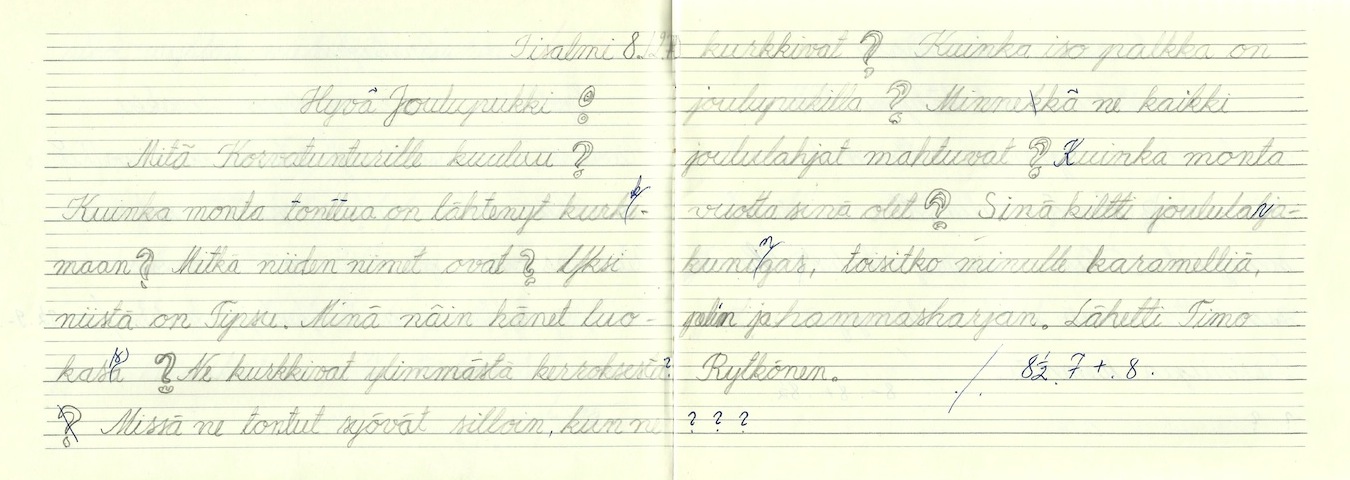 Iisalmi 8.12.
Hyvä Joulupukki !
Mitä Korvatunturille kuuluu ?
Kuinka monta tonttua on lähtenyt kurkki-
maan ? Mitkä niiden nimet ovat ? Yksi
niistä on Tipsu. Minä näin hänet luo-
kasta ? Ne kurkkivat ylimmästä kerroksesta ?
? Missä ne tontut syövät silloin, kun ne
kurkkivat ? Kuinka iso palkka on
joulupukilla ? Minnekkä ne kaikki
joululahjat mahtuvat ? Kuinka monta
vuotta sinä olet ? Sinä kiltti joululahja-
kuningas, toisitko minulle karamelliä,
pelin ja hammasharjan. Lähetti Timo
Rytkönen. 8½. 7+. 8.
? ? ?